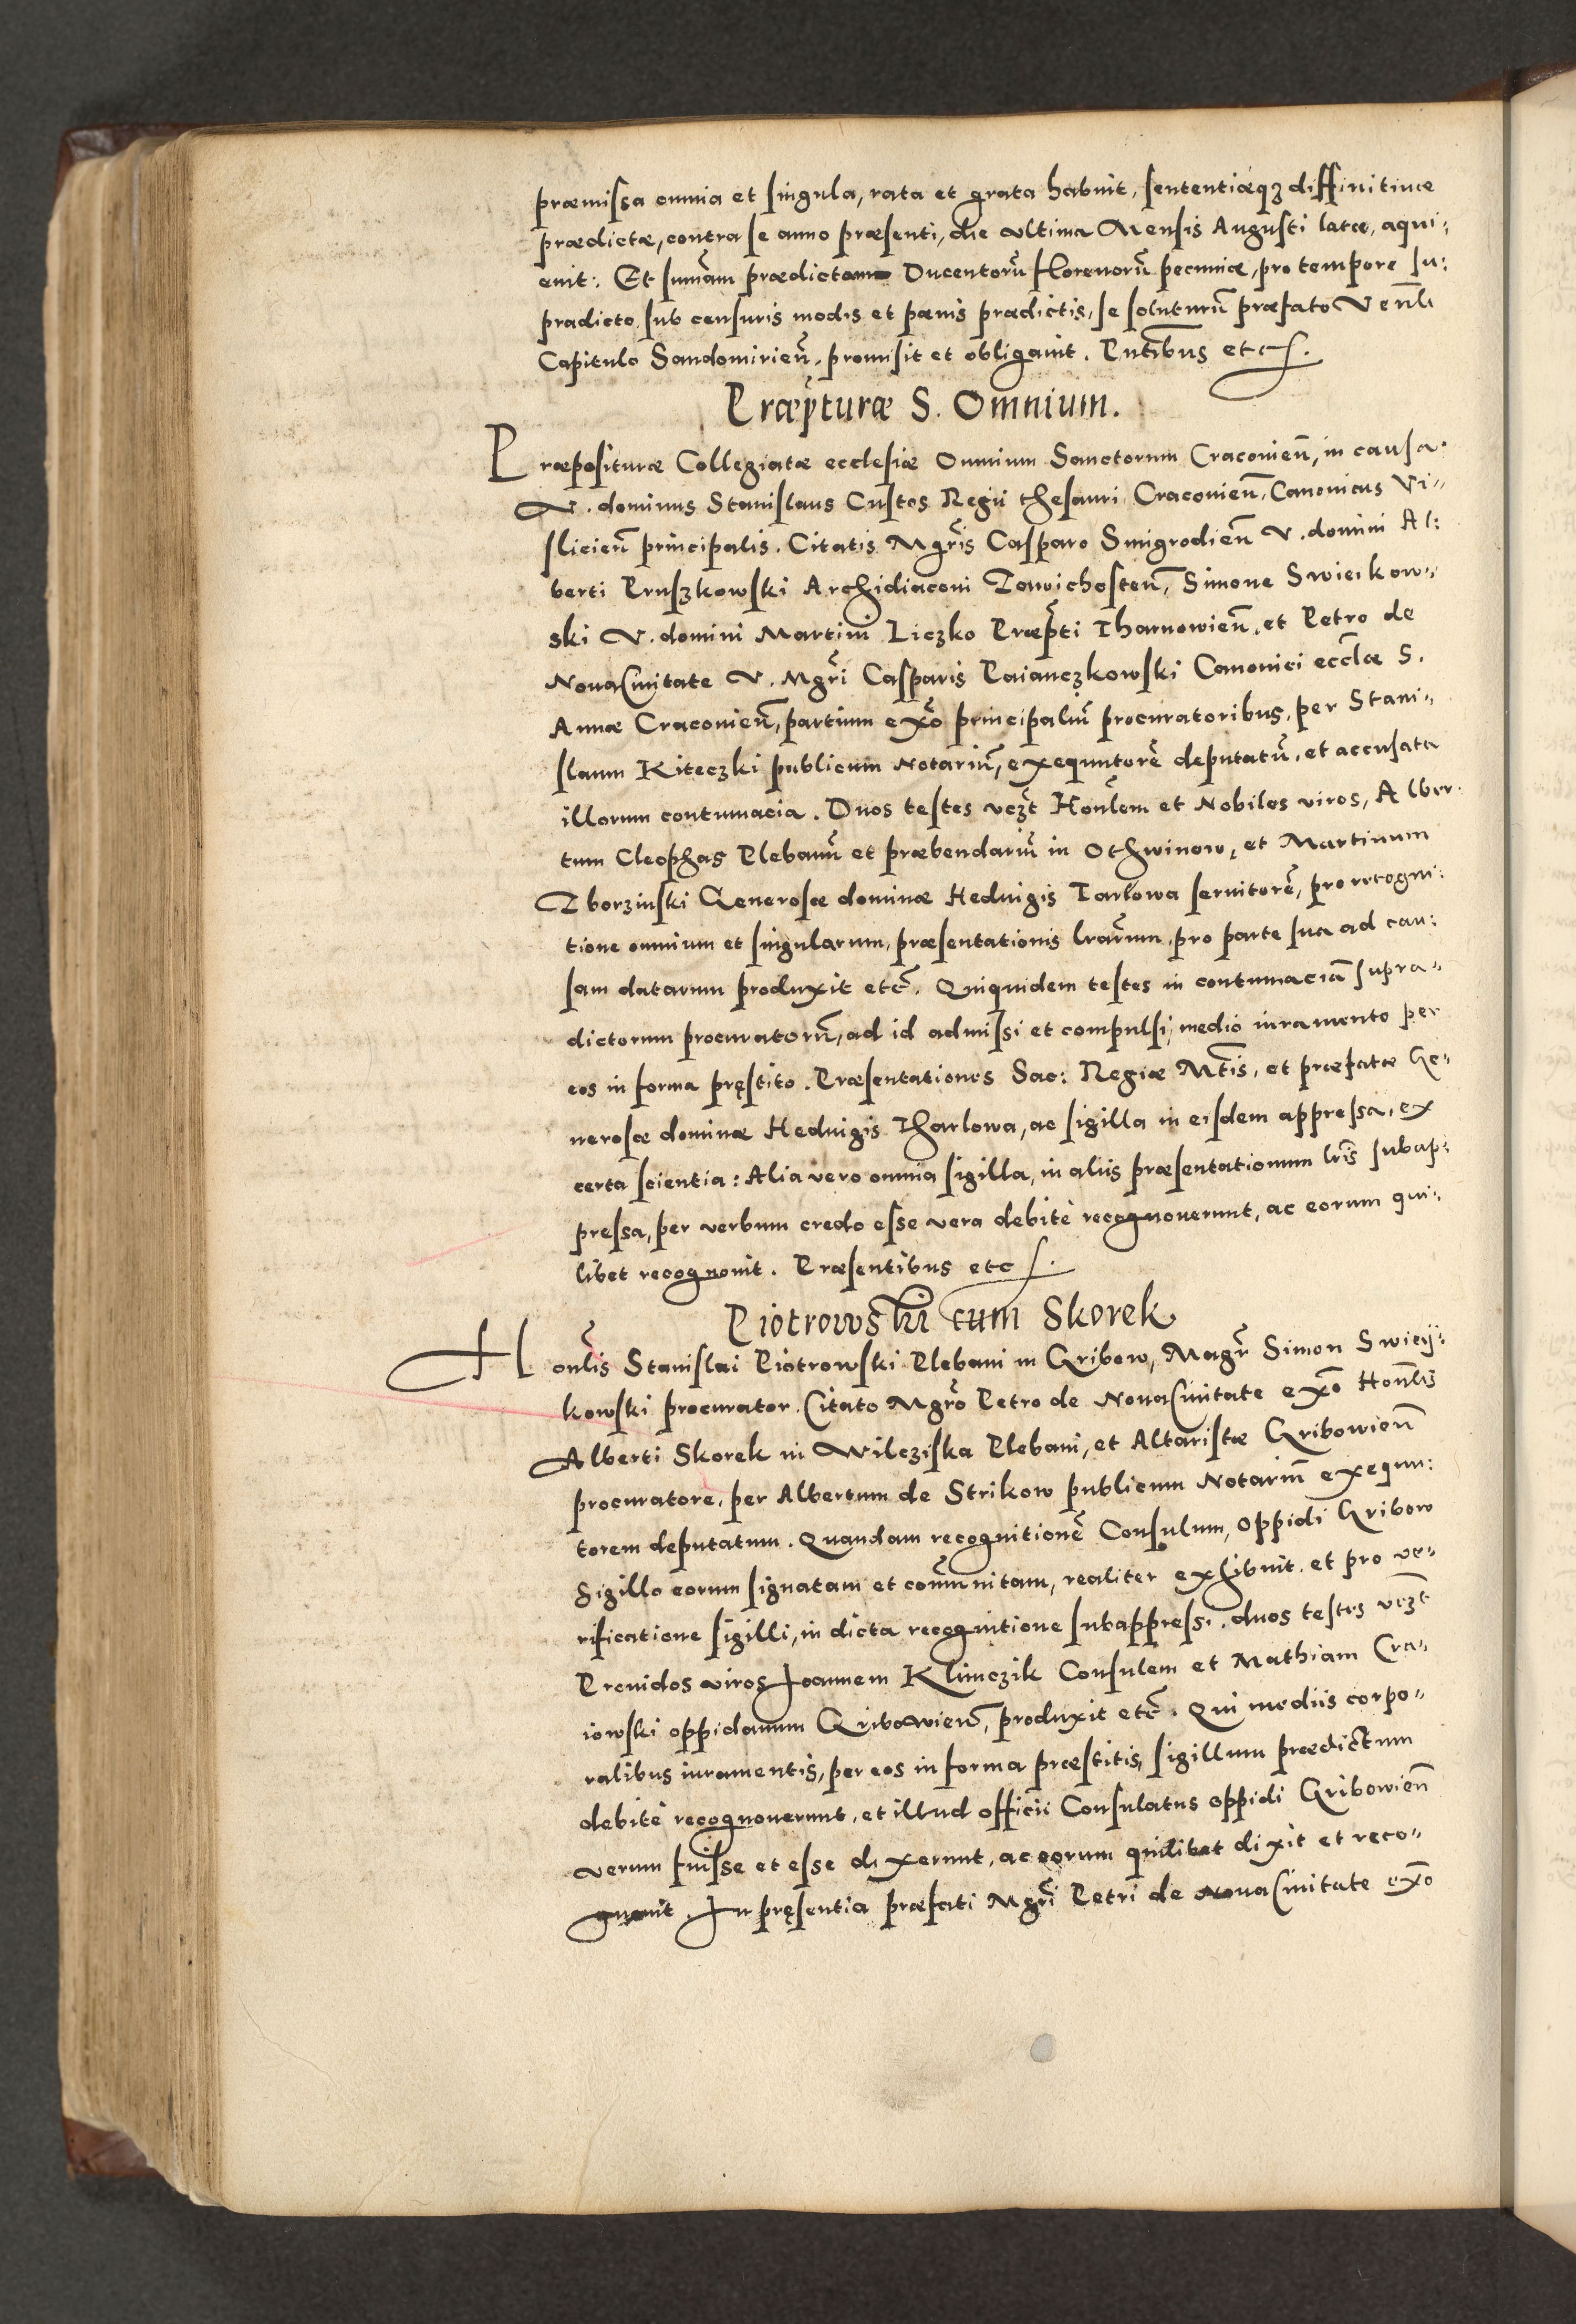 præmissa omnia et singula, rata et grata habuit, sententiæqꝫ diffinitiue
prædictæ, contra se anno præsenti, die ultima Mensis Augusti latæ, aqui:
euit: Et sum̃am prædictam Ducentorũ florenorũ pecuniæ, pro tempore su:
pradicto sub censuris modis et pœnis prædictis, se soluturũ præfato Veñli
Capitulo Sandomirieñ. promisit et obligauit. Pñtibus etc.
Præp̃turæ S. Omnium.
Præposituræ Collegiatæ ecclesiæ Omnium Sanctorum Cracouieñ, in causa:
V. dominus Stanislaus Custos Regii thesauri Cracouieñ, Canonicus Vi„
slicieñ principalis. Citatis Mgr̃is Casparo Smigrodieñ V. domini Al:
berti Pruszkowski Archidiaconi Zawichosteñ, Simone Swieikow„
ski V. domini Martini Liczko Præp̃ti Tharnowieñ, et Petro de
Nouaciuitate V. Mgr̃i Casparis Paianczkowski Canonici eccl̃æ S.
Annæ Cracouieñ, partium ex̃o principaliũ procuratoribus, per Stani„
slaum Kiteczki publicum Notariũ, exequutorẽ deputatũ, et accusata
illorum contumacia. Duos testes vczt̃ Hoñlem et Nobiles viros, Alber:
tum Cleophas Plebanũ et præbendariũ in Othwinow, et Martinum
Zborzinski Generosæ dominæ Heduigis Tarlowa seruitorẽ, pro recogni:
tione omnium et singularum, præsentationis lrãrum, pro parte sua ad cau:
sam datarum produxit etc̃. Quiquidem testes in contumaciã supra„
dictorum procuratorũ, ad id admissi et compulsi, medio iuramento per
eos in forma pręstito. Præsentationes Sac: Regiæ Mt̃is, et præfatæ Ge„
nerosæ dominæ Heduigis Tharlowa, ac sigilla in eisdem appressa, ex
certa scientia: Alia vero omnia sigilla, in aliis præsentationum lr̃is subap:
pressa, per verbum credo esse vera debitè recognouerunt, ac eorum qui„
libet recognouit. Præsentibus etc.
Piotrowski cum Skorek
Hoñlis Stanislai Piotrowski Plebani in Gribow, Magr̃ Simon Swieij„
kowski procurator. Citato Mgr̃o Petro de Nouaciuitate ex̃o Hoñlis
Alberti Skorek in Wilcziska Plebani, et Altaristæ Gribowieñ
procuratore, per Albertum de Strikow publicum Notariũ exequu:
torem deputatum. Quandam recognitionẽ Consulum, oppidi Gribow
Sigillo eorum signatam et com̃unitam, realiter exhibuit. et pro ve„
rificatione sigilli, in dicta recognitione subappressi. duos testes vczt̃
Prouidos viros Joannem Klimczik Consulem et Mathiam Cra„
iowski oppidanum Gribowieñ, produxit etc̃. Qui mediis corpo„
ralibus iuramentis, per eos in forma præstitis, sigillum prædictum
debitè recognouerunt, et illud officii Consulatus oppidi Gribowieñ
verum fuisse et esse dixerunt, ac eorum quilibet dixit et reco„
gnouit. In pręsentia præfati Mgr̃i Petri de Nouaciuitate ex̃o